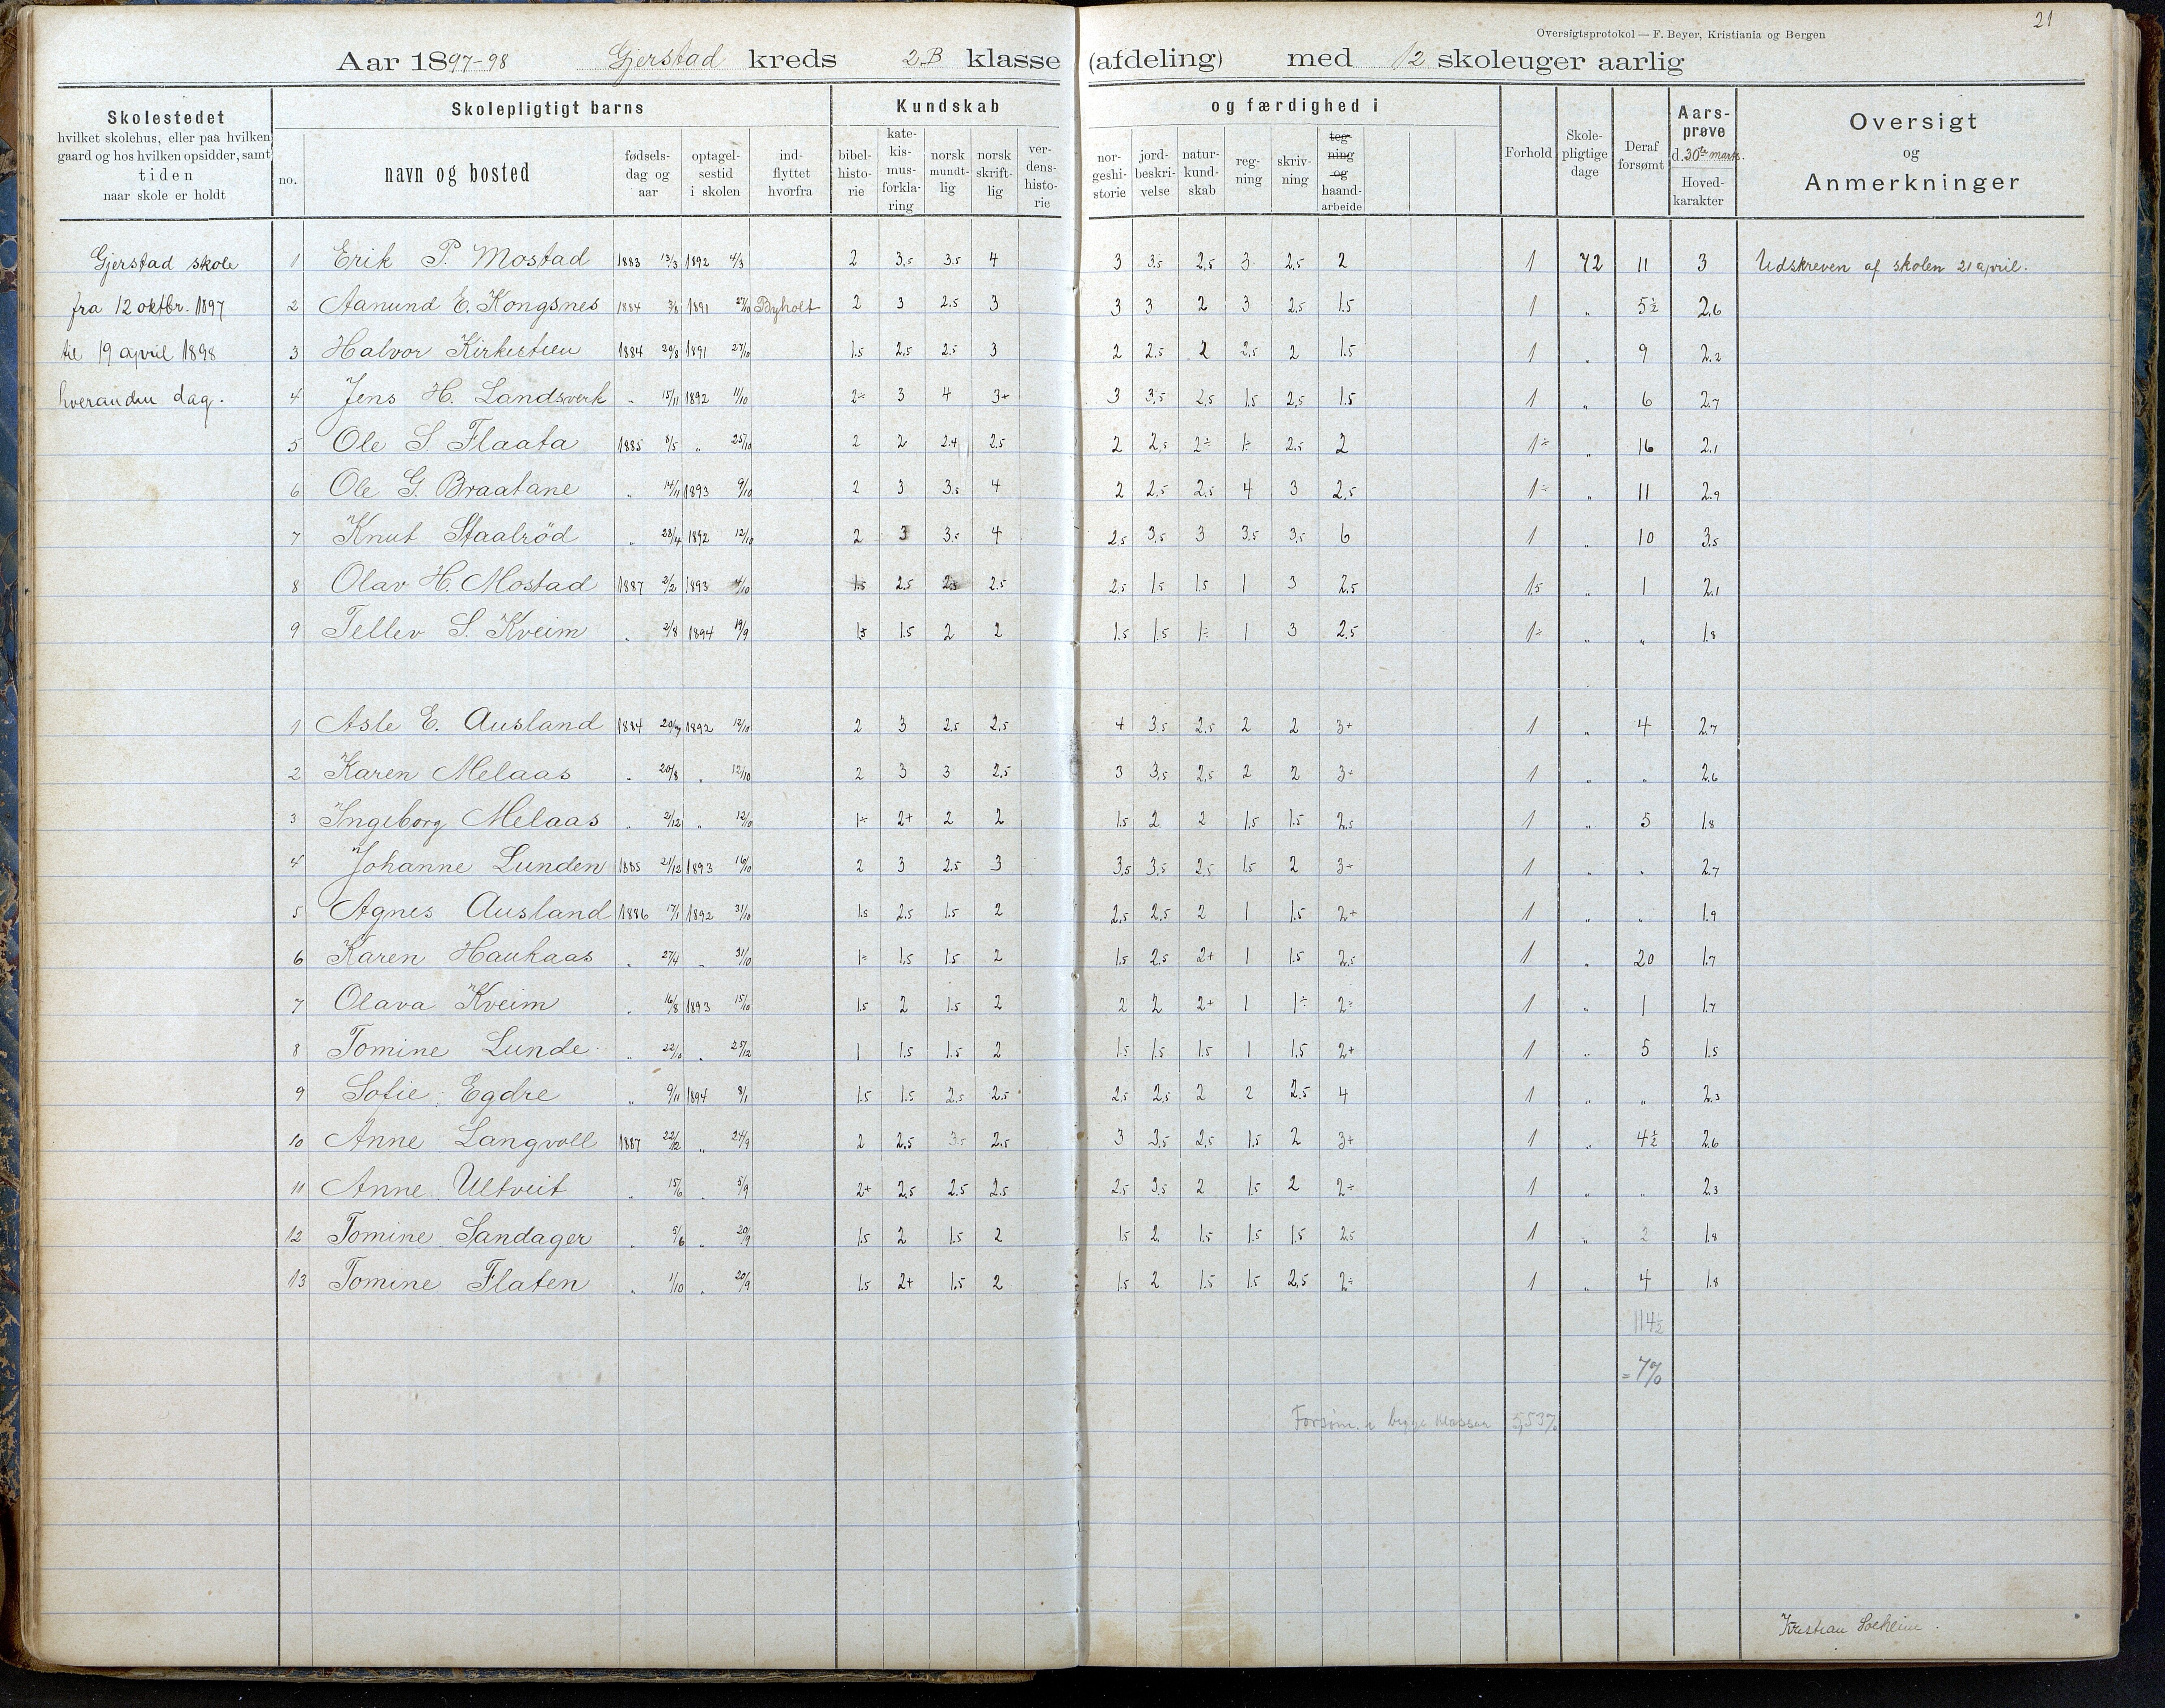 21
Oversigtsprotokol — F. Beyer, Kristiania og Bergen
Aar 1897-98 Gjerstad kreds 2B klasse (afdeling) med 12 skoleuger aarlig
Skolestedet hvilket skolehus, eller paa hvilken gaard og hos hvilken opsidder, samt tiden naar skole er holdt
Skolepligtigt barns
no. navn og bosted fødsels-dag og aar optagel-sestid i skolen ind-flyttet hvorfra
Kundskab og færdighed i
bibel-histo-rie kate-kis-mus-forkla-ring norsk mundt-lig norsk skrift-lig ver-dens-histo-rie nor-geshi-storie jord-beskri-velse natur-kund-skab reg-ning skriv-ning teg-ning og haand-arbeide
Forhold Skole-pligtige dage Deraf forsømt Aars-prøve d. 30te marts. Hoved-karakter
Oversigt og Anmerkninger
Gjerstad skole 1 Erik P. Mostad 1883 13/3 1892 4/3 2 3,5 3.5 4 3 3,5 2,5 3 2,5 2 1 72 11 3 Udskreven af skolen 21 april.
fra 12 oktbr. 1897 2 Aanund E. Kongsnes 1884 3/8 1891 27/10 Byholt 2 3 2.5 3 3 3 2 3 2,5 1.5 1 „ 5½ 2,6
til 19 april 1898 3 Halvor Kirkestien 1884 29/8 1891 27/10 1.5 2,5 2.5 3 2 2.5 2 2,5 2 1.5 1 „ 9 2.2
hverandn dag. 4 Jens H. Landsverk „ 15/11 1892 11/10 2÷ 3 4 3+ 3 3,5 2,5 1.5 2,5 1.5 1 „ 6 2.7
5 Ole S. Flaata 1885 8/5 „ 25/10 2 2 2.4 2.5 2 2,5 2÷ 1÷ 2.5 2 1÷ „ 16 2.1
6 Ole G. Braatane „ 14/11 1893 9/10 2 3 3.5 4 2 2.5 2.5 4 3 2,5 1÷ „ 11 2.9
7 Knut Staalrød „ 28/4 1892 12/10 2 3 3.5 4 2,5 3,5 3 3,5 3,5 6 1 „ 10 3.5
8 Olav H. Mostad 1887 2/2 1893 4/10 1.5 2.5 2.5 2.5 2,5 1.5 1.5 1 3 2.5 1,5 „ 1 2.1
9 Tellev S. Kveim „ 2/8 1894 19/9 1.5 1.5 2 2 1.5 1.5 1÷ 1 3 2.5 1÷ „ „ 1.8
1 Asle E. Ausland 1884 20/7 1892 12/10 2 3 2.5 2,5 4 3,5 2.5 2 2 3+ 1 „ 4 2.7
2 Karen Melaas „ 20/8 „ 12/10 2 3 3 2.5 3 3,5 2,5 2 2 3÷ 1 „ „ 2.6
3 Ingeborg Melaas „ 2/12 „ 12/10 1÷ 2+ 2 2 1.5 2 2 1.5 1.5 2.5 1 „ 5 1.8
4 Johanne Lunden 1885 21/12 1893 16/10 2 3 2.5 3 3,5 3,5 2,5 1.5 2 3÷ 1 „ „ 2.7
5 Agnes Ausland 1886 17/1 1892 31/10 1.5 2.5 1.5 2 2,5 2,5 2 1 1.5 2+ 1 „ „ 1.9
6 Karen Haukaas „ 27/4 „ 31/10 1÷ 1.5 1.5 2 1.5 2.5 2+ 1 1.5 2.5 1 „ 20 1.7
7 Olava Kveim „ 16/8 1893 15/10 1.5 2 1.5 2 2 2 2+ 1 1÷ 2÷ 1 „ 1 1.7
8 Tomine Lunde „ 22/10 „ 25/12 1 1.5 1.5 2 1.5 1.5 1.5 1 1.5 2+ 1 „ 5 1.5
9 Sofie Egdre „ 9/11 1894 8/1 1.5 1.5 2.5 2.5 2.5 2,5 2 2 2.5 4 1 „ „ 2.3
10 Anne Langvoll 1887 22/12 „ 24/9 2 2,5 3.5 2.5 3 3,5 2,5 1.5 2 3+ 1 „ 4½ 2.6
11 Anne Ultveit „ 15/6 „ 5/9 2+ 2,5 2.5 2.5 2.5 3,5 2 1.5 2 2÷ 1 „ „ 2.3
12 Tomine Sandager „ 5/6 „ 20/9 1.5 2 1.5 2 1.5 2 1.5 1.5 1.5 2.5 1 „ 2 1.8
13 Tomine Flaten „ 1/10 „ 20/9 1.5 2+ 1.5 2 1.5 2 1.5 1.5 2,5 2÷ 1 „ 4 1.8
114½
= 7%
Forsøm. i begge klasser 5,53%
Kristian Solheim.